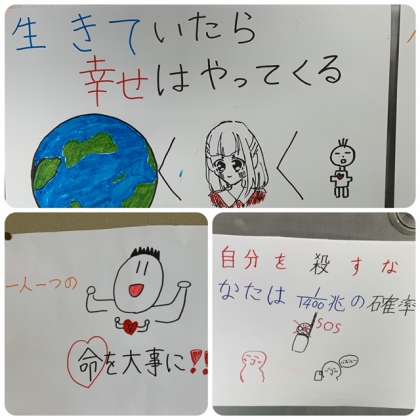 生きていたら
幸せはやってくる
一人一つの
命を大事に!!
自分を殺すな
なたは1/1400兆の確率
SOS